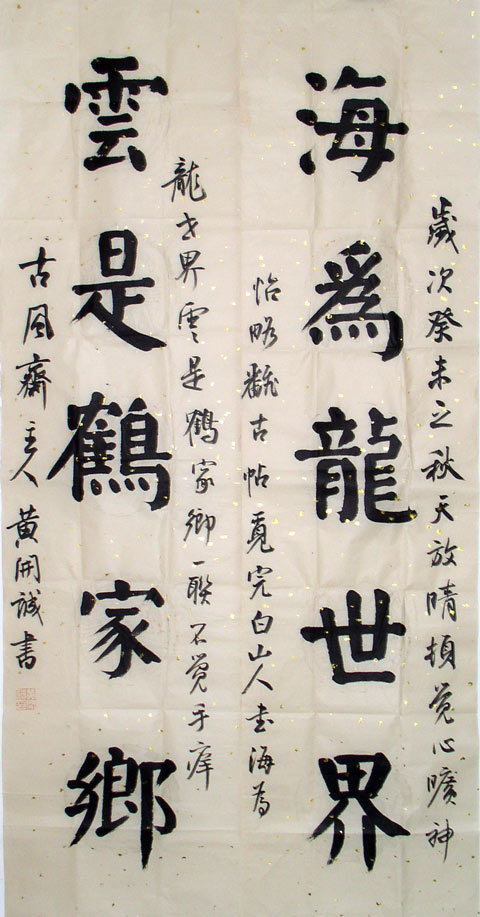 歲次癸未之秋天放晴頓覺心曠神
海爲龍世界
怡略翻古帖覓完白山人書海為
龍世界雲是鶴家鄉一聯不覺手痒
雲是鶴家鄉
古風齋主人黃開誠書